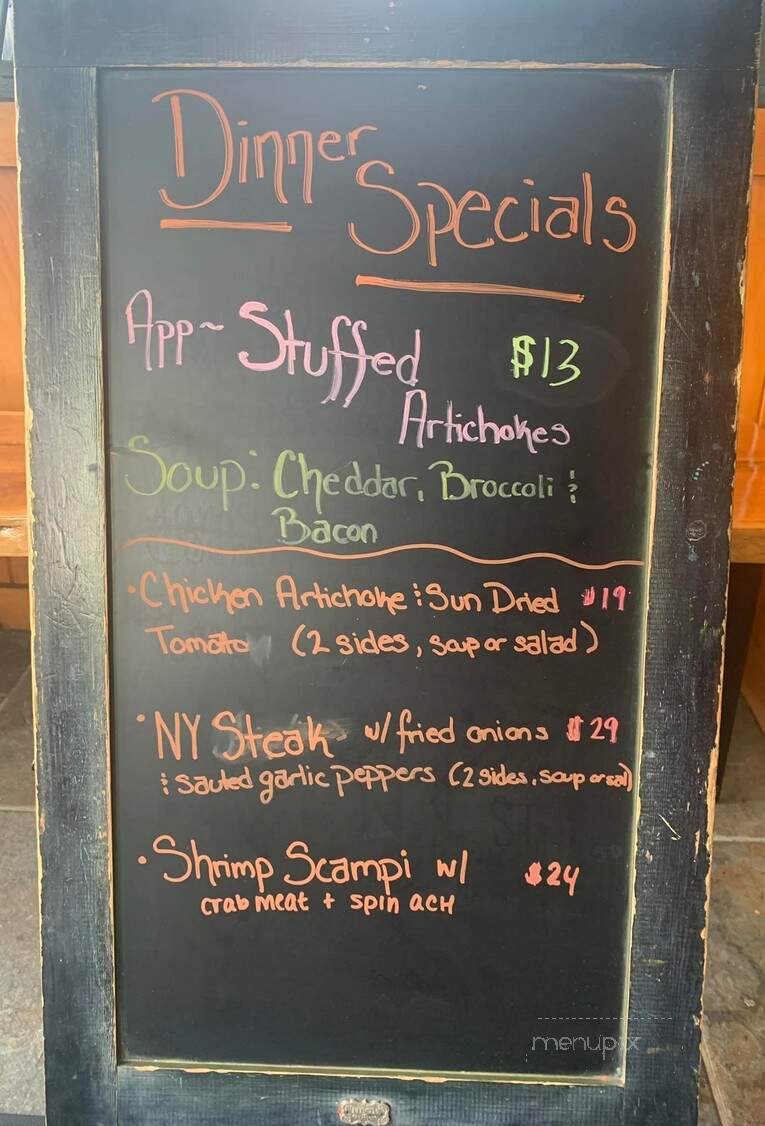 Dinner
Specials
App~ Stuffed $13
Artichokes
Soup: Cheddar, Broccoli &
Bacon
• Chicken Artichoke & Sun Dried $19
Tomato (2 sides, soup or salad)
• NY Steak w/ fried onions $29
& sauted garlic peppers (2 sides, soup or sal)
• Shrimp Scampi w/ $24
crab meat + spin acH
menupix